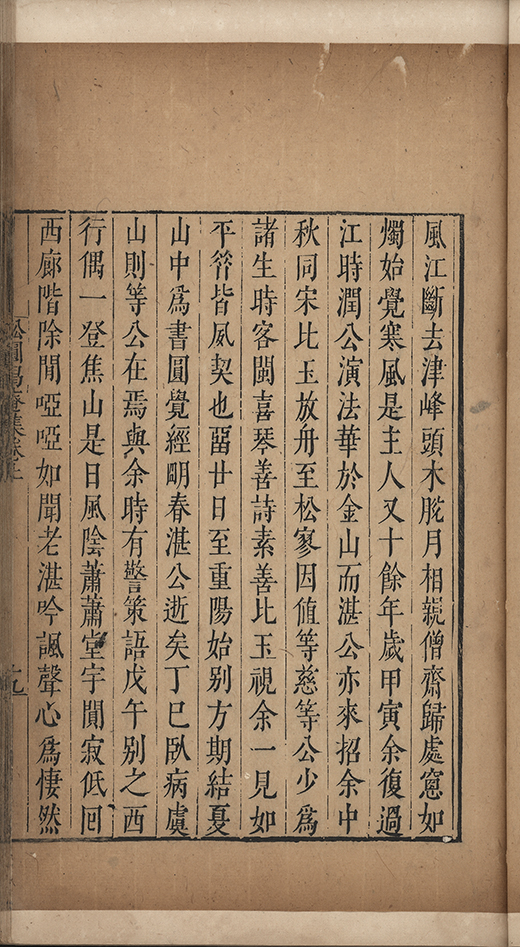 風江斷去津峰頭木脫月相親僧齋歸處窻如
燭始覺寒風是主人又十餘年歲甲寅余復過
江時潤公演法華於金山而湛公亦來招余中
秋同宋比玉放舟至松寥因值等慈等公少爲
諸生時客閩喜琴善詩素善比玉視余一見如
平笄皆夙契也畱廿日至重陽始别方期結夏
山中爲書圓覺經明春湛公逝矣丁巳臥病虞
山則等公在焉與余時有警策語戊午别之西
行偶一登焦山是日風隂蕭蕭堂宇閴寂低囘
西廊階除閒啞啞如聞老湛吟諷聲心爲悽然
松圓偈庵集卷上
十九